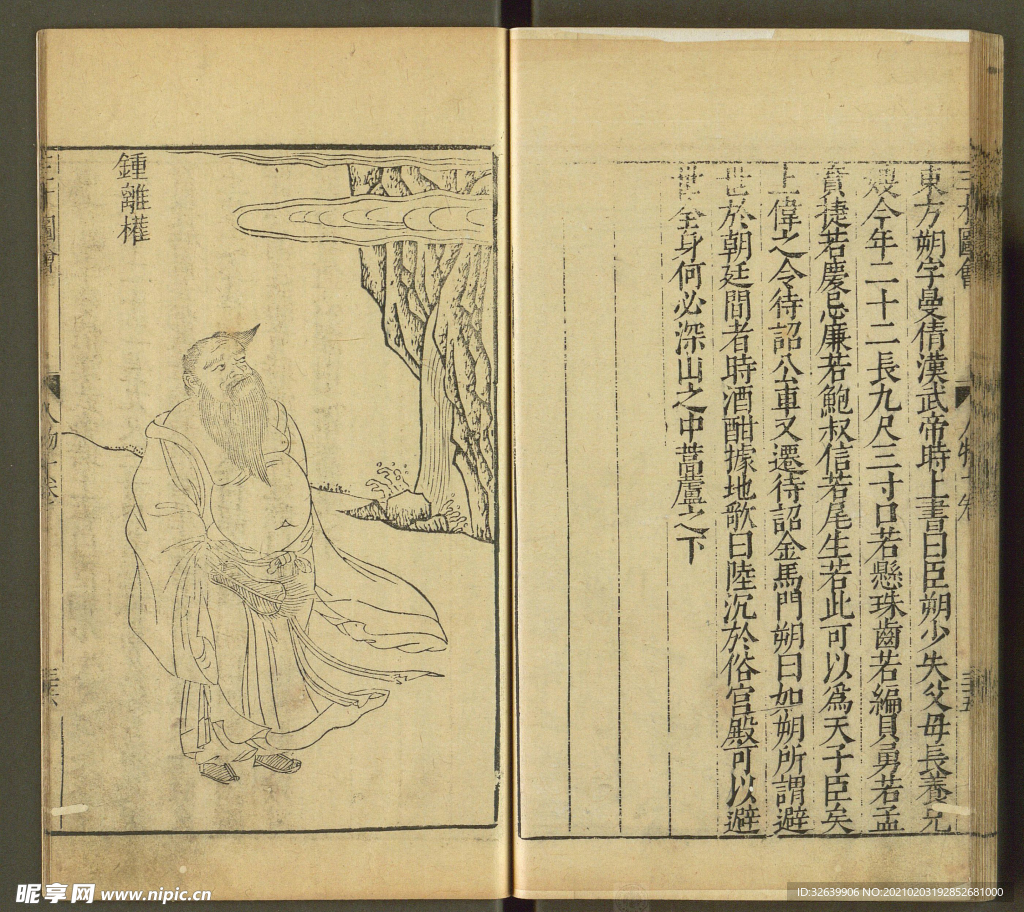 三才圖會
人物十卷
三十五
東方朔字曼倩漢武帝時上書曰臣朔少失父母長養兄
嫂今年二十二長九尺三寸口若懸珠齒若編貝勇若孟
賁捷若慶忌廉若鮑叔信若尾生若此可以爲天子臣矣
上偉之令待詔公車又遷待詔金馬門朔曰如朔所謂避
世於朝廷間者時酒酣據地歌曰陸沉於俗宫殿可以避
世全身何必深山之中蒿蘆之下
鍾離權
三才圖會
人物十卷
昵享网 www.nipic.cn
ID:32639906 NO:20210203192852681000